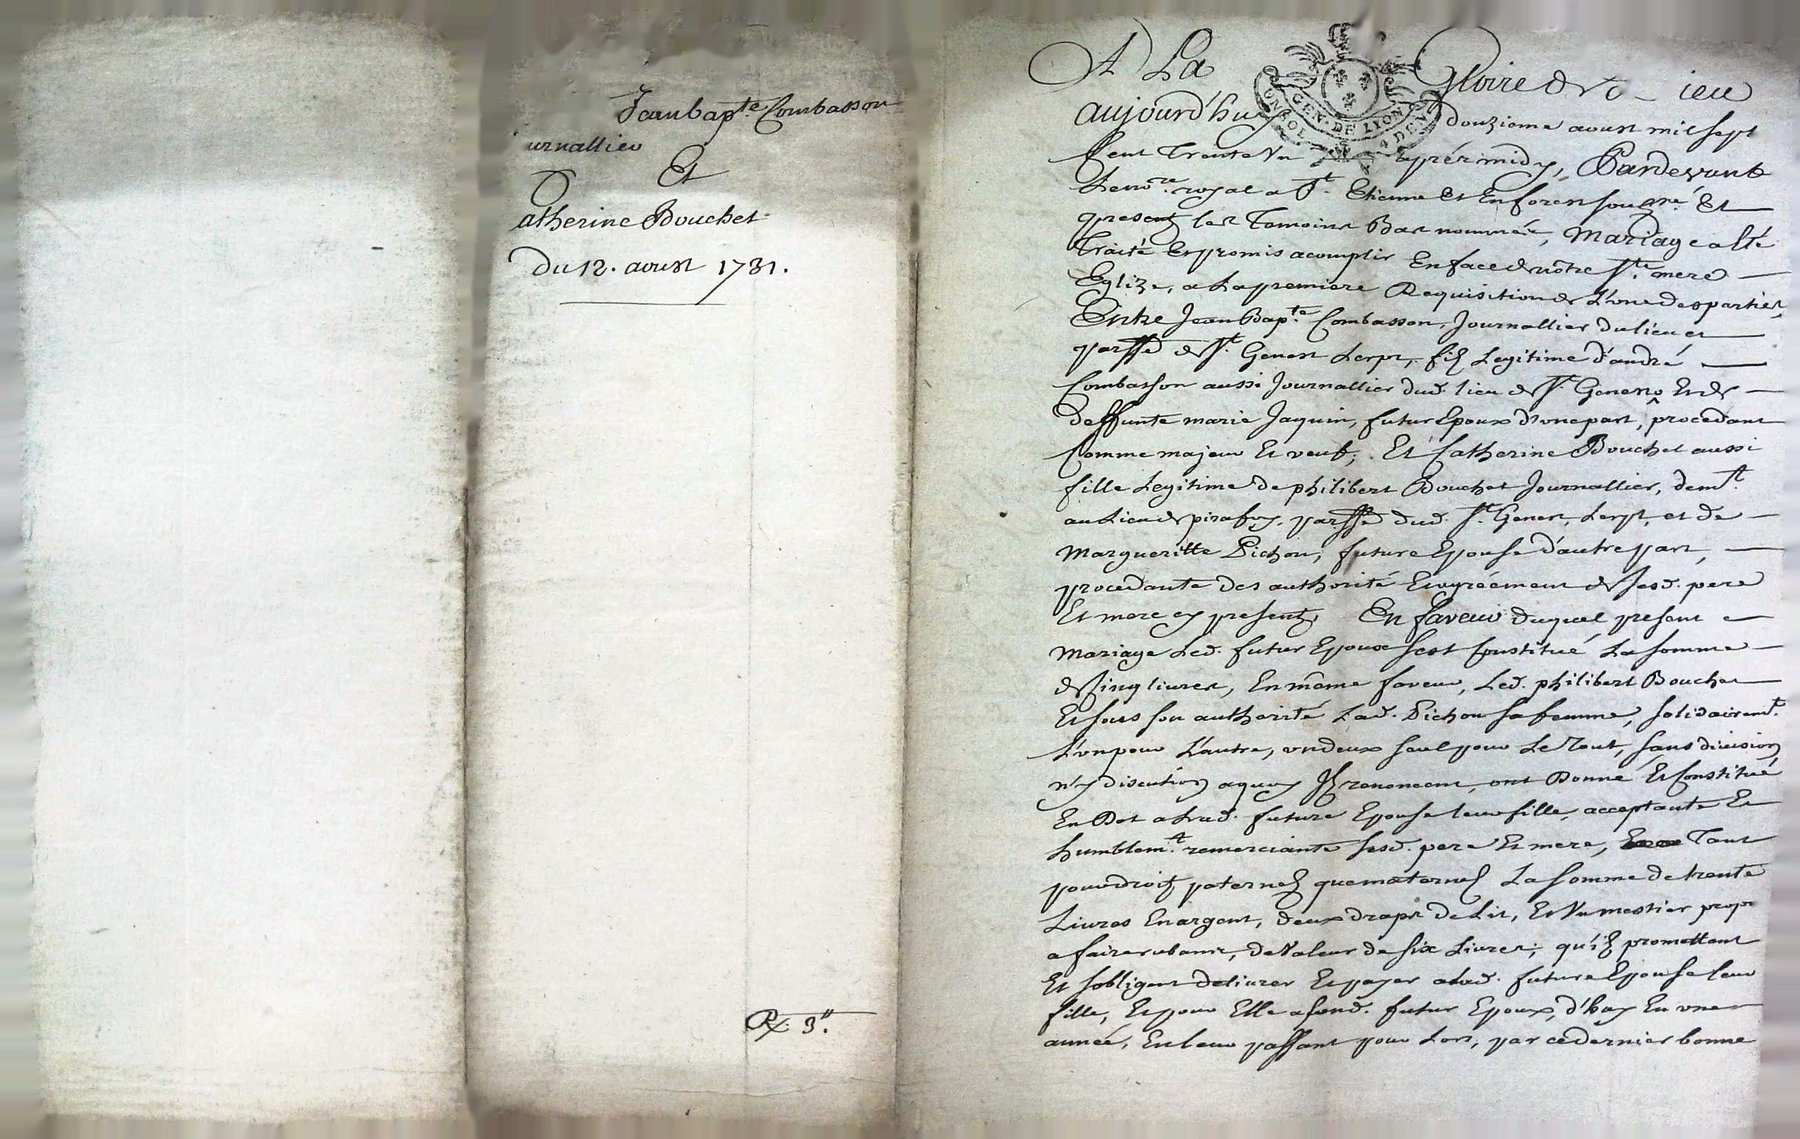 Jean bapte. Combasson
urnallieu
Et
Catherine Bouchet
Du 12. aoust 1731.
Rx. 3"
A La Gloire de Dieu
GEN. DE LYON
aujourd'huy douzieme aoust mil sept
Cent Trente Un apres midy, Pardevant
Le nore. royal a St. Etienne Et En forest sousgné. Et
presents les Temoins Bas nommés, Mariage a Eté
Traité Et promis acomplir En face de nôtre Ste. mere
Eglize, a La premiere Requisition de L'une des parties,
Entre Jean Bapte. Combasson, Journallier du lieu et
parsse de St. Genest Lerpt, fils Legitime d'andré
Combasson aussi Journallier dud. lieu de St. Genest Et de
deffunte marie Jaquin, futur Epoux d'une part, procedant
Comme majeur Et veuf; Et Catherine Bouchet aussi
fille Legitime de philibert Bouchet Journallier, demt.
au Lieu de parsse dud. St. Genest, Lerpt, et de
Margueritte Pichon, future Epouse d'autre part,
procedante des authorité Et agréement de sesd. pere
Et mere cy presents. En faveur duquel present
Mariage Led. futur Epoux s'est Constitué La somme
de Cinq livres, En même faveur, Led. philibert Bouchet
Et sous son authorité Lad. Pichon sa femme, solidairemt.
L'un pour L'autre, un deux seul pour Le Tout, sans division
n'y discution aquoy Ils renoncent, ont Donné Et Constitué
En Dot a Lad. future Epouse leur fille, acceptante Et
humblemt. remerciante sesd. pere Et mere, Tant
pour droits paternels que maternels La somme de trente
Livres En argent, deux draps de Lit, Et Un mestier propre
a faire rubans, de Valeur de six Livres; qu'ils promettent
Et sobligent delivrer Et payer a Lad. future Epouse leur
fille, Et pour Elle a sond. futur Epoux, d'huy En une
année, En leur passant pour Lors, par ce dernier bonne